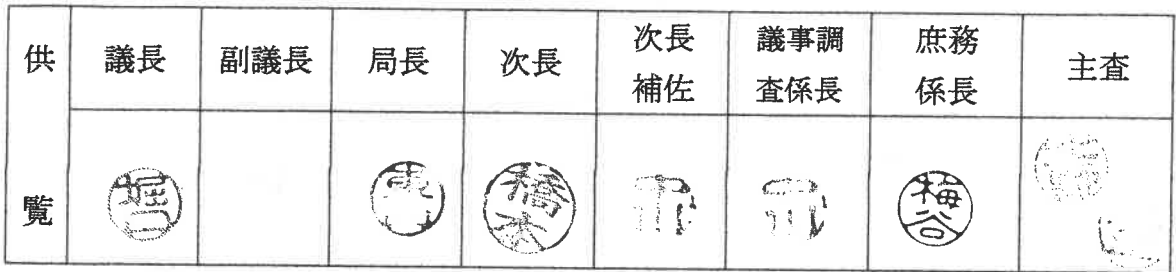 供覧
議長
副議長
局長
次長
次長
補佐
議事調
査係長
庶務
係長
主査
堀口
橋本
梅谷